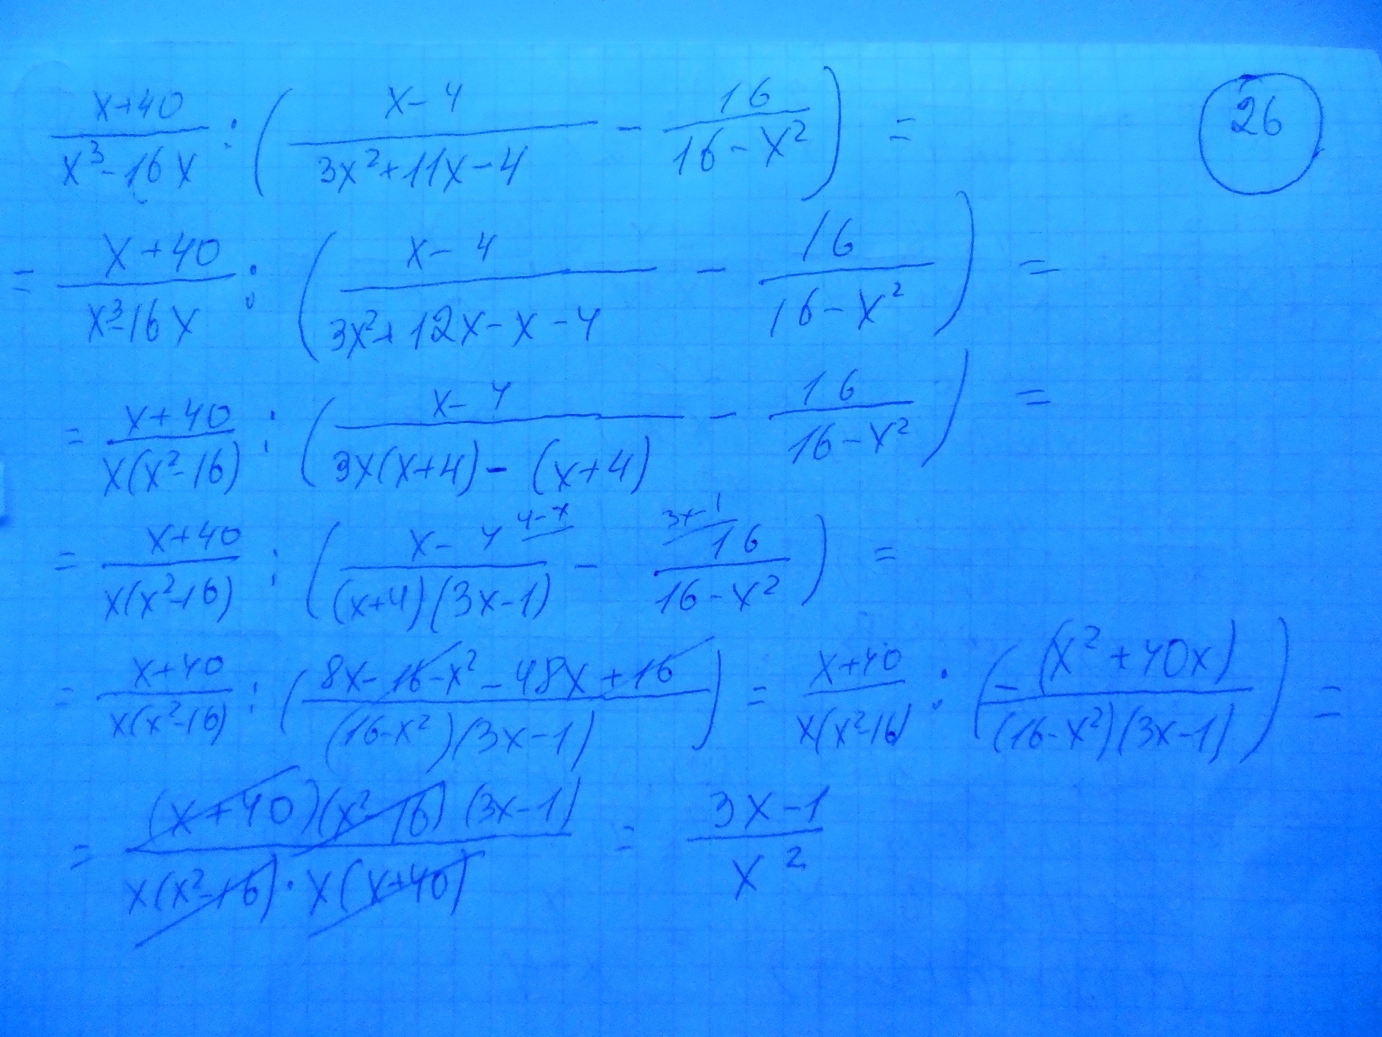 (x+40)/(x³-16x) : ((x-4)/(3x²+11x-4) - 16/(16-x²)) = 26
= (x+40)/(x³-16x) : ((x-4)/(3x²+12x-x-4) - 16/(16-x²)) =
= (x+40)/(x(x²-16)) : ((x-4)/(3x(x+4)-(x+4)) - 16/(16-x²)) =
= (x+40)/(x(x²-16)) : ((x-4 4-x)/((x+4)(3x-1)) - (3x-1 16)/(16-x²)) =
= (x+40)/(x(x²-16)) : ((8x-16-x²-48x+16)/((16-x²)(3x-1))) = (x+40)/(x(x²-16)) : (-(x²+40x)/((16-x²)(3x-1))) =
= ((x+40)(x²-16)(3x-1))/(x(x²-16)·x(x+40)) = (3x-1)/x²